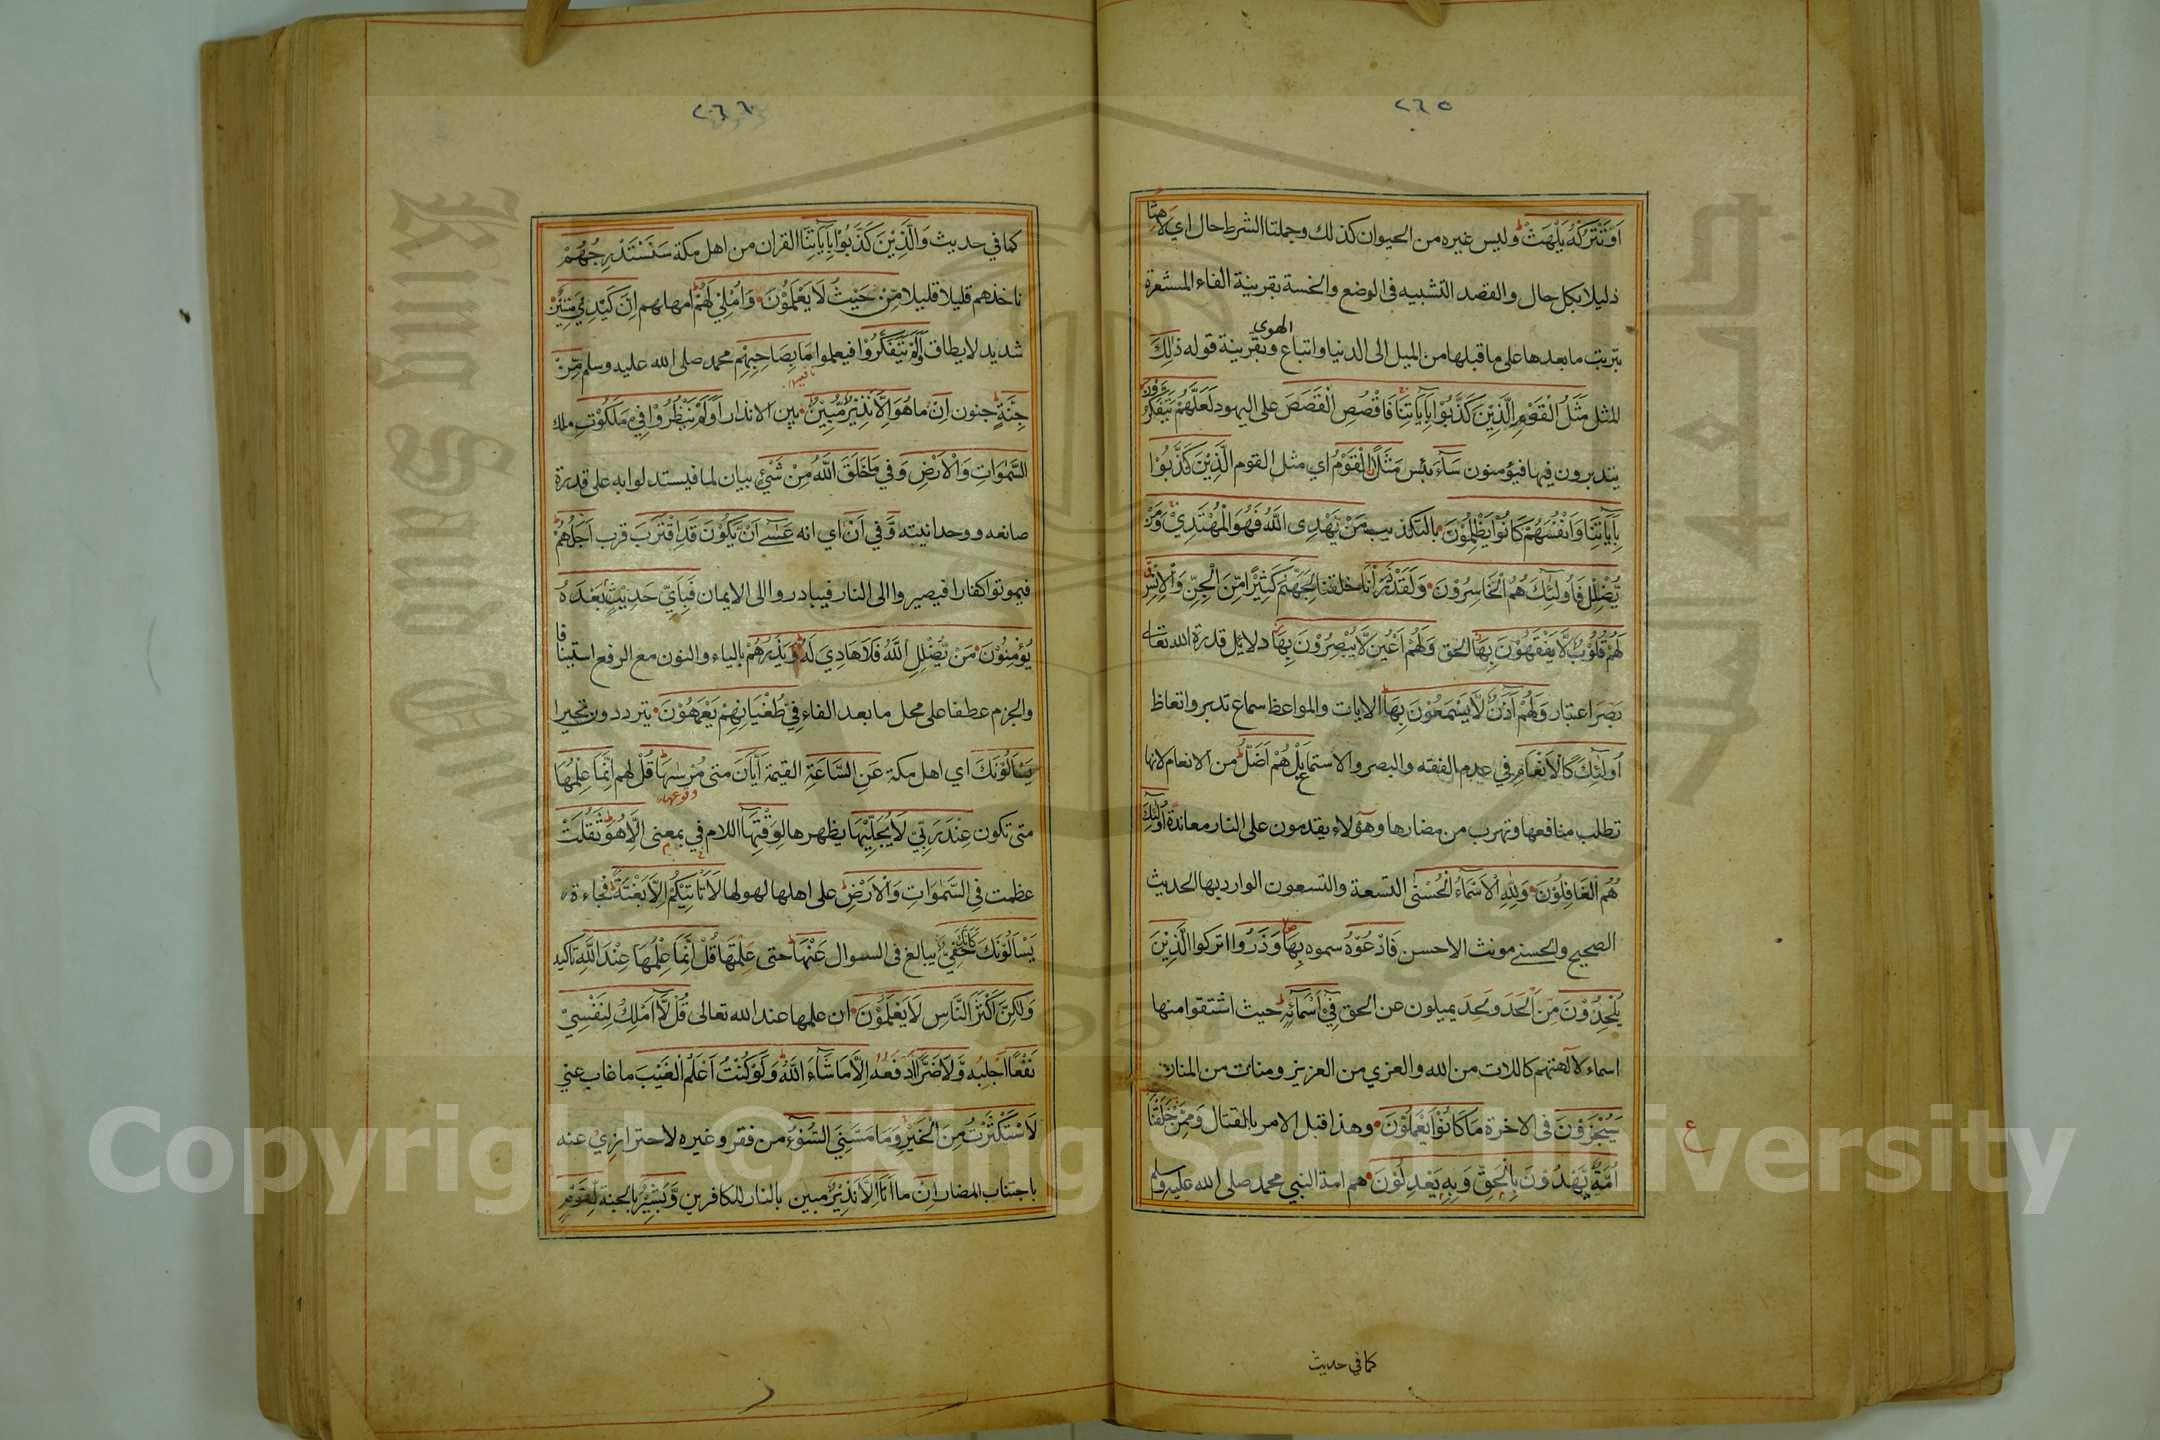 ٢٦٥
اَوْ تَتْرُكْهُ يَلْهَثْ وليس غيره من الحيوان كذلك وجملتا الشرط حال اي لاهثا
ذليلا بكل حال والقصد التشبيه في الوضع والخسة بقرينة الفاء المشعرة
بترتب ما بعدها على ما قبلها من الميل الى الدنيا واتباع الهوى وبقرينة قوله ذٰلِكَ
المثل مَثَلُ الْقَوْمِ الَّذِيْنَ كَذَّبُوْا بِاٰيَاتِنَا فَاقْصُصِ الْقَصَصَ على اليهود لَعَلَّهُمْ يَتَفَكَّرُوْنَ
يتدبرون فيها فيؤمنون سَآءَ بئس مَثَلًا الْقَوْمُ اي مثل القوم الَّذِيْنَ كَذَّبُوْا
بِاٰيَاتِنَا وَاَنْفُسَهُمْ كَانُوْا يَظْلِمُوْنَ بالتكذيب مَنْ يَهْدِى اللّٰهُ فَهُوَ الْمُهْتَدِيْ وَمَنْ
يُضْلِلْ فَاُولٰٓئِكَ هُمُ الْخَاسِرُوْنَ وَلَقَدْ ذَرَأْنَا خلقنا لِجَهَنَّمَ كَثِيْرًا مِّنَ الْجِنِّ وَالْاِنْسِ
لَهُمْ قُلُوْبٌ لَّا يَفْقَهُوْنَ بِهَا الحق وَلَهُمْ اَعْيُنٌ لَّا يُبْصِرُوْنَ بِهَا دلائل قدرة الله تعالى
بصر اعتبار وَلَهُمْ اٰذَنٌ لَّا يَسْمَعُوْنَ بِهَا الايات والمواعظ سماع تدبر واتعاظ
اُولٰٓئِكَ كَالْاَنْعَامِ في عدم الفقه والبصر والاستماع بَلْ هُمْ اَضَلُّ من الانعام لانها
تطلب منافعها وتهرب من مضارها وهؤلاء يقدمون على النار معاندة اُولٰٓئِكَ
هُمُ الْغَافِلُوْنَ وَلِلّٰهِ الْاَسْمَآءُ الْحُسْنٰى التسعة والتسعون الوارد بها الحديث
الصحيح والحسنى مونث الاحسن فَادْعُوْهُ سموه بِهَا وَذَرُوا اتركوا الَّذِيْنَ
يُلْحِدُوْنَ مِن اَلْحَدَ ولَحَدَ يميلون عن الحق فِيْٓ اَسْمَآئِهٖ حيث اشتقوا منها
اسماء لآلهتهم كاللات من الله والعزي من العزيز ومنات من المنان
سَيُجْزَوْنَ في الاخرة مَا كَانُوْا يَعْمَلُوْنَ وهذا قبل الامر بالقتال وَمِمَّنْ خَلَقْنَا
اُمَّةٌ يَّهْدُوْنَ بِالْحَقِّ وَبِهٖ يَعْدِلُوْنَ هم امة النبي محمد صلى الله عليه وسلم
ع
كما في حديث
٢٦٦
كما في حديث وَالَّذِيْنَ كَذَّبُوْا بِاٰيَاتِنَا القران من اهل مكة سَنَسْتَدْرِجُهُمْ
ناخذهم قليلا قليلا مِّنْ حَيْثُ لَا يَعْلَمُوْنَ وَاُمْلِيْ لَهُمْ امهلهم اِنَّ كَيْدِيْ مَتِيْنٌ
شديد لا يطاق اَوَلَمْ يَتَفَكَّرُوْا فيعلموا مَا بِصَاحِبِهِمْ محمد صلى الله عليه وسلم مِّنْ
جِنَّةٍ جنون اِنْ ما هُوَ اِلَّا نَذِيْرٌ مُّبِيْنٌ بين الانذار اَوَلَمْ يَنْظُرُوْا فِيْ مَلَكُوْتِ ملك
السَّمٰوَاتِ وَالْاَرْضِ وَفي مَا خَلَقَ اللّٰهُ مِنْ شَيْءٍ بيان لما فيستدلوا به على قدرة
صانعه ووحدانيته وَّفي اَنْ اي انه عَسٰٓى اَنْ يَّكُوْنَ قَدِ اقْتَرَبَ قرب اَجَلُهُمْ
فيموتوا كفارا فيصيروا الى النار فيبادروا الى الايمان فَبِاَيِّ حَدِيْثٍ بَعْدَهٗ
يُؤْمِنُوْنَ مَنْ يُّضْلِلِ اللّٰهُ فَلَا هَادِيَ لَهٗ وَيَذَرُهُمْ بالياء والنون مع الرفع استينافا
والجزم عطفا على محل ما بعد الفاء فِيْ طُغْيَانِهِمْ يَعْمَهُوْنَ يترددون تحيرا
يَسْاَلُوْنَكَ اي اهل مكة عَنِ السَّاعَةِ القيمة اَيَّانَ متى مُرْسٰىهَا قُلْ لهم اِنَّمَا عِلْمُهَا
وقوعها
متى تكون عِنْدَ رَبِّيْ لَا يُجَلِّيْهَا يظهرها لِوَقْتِهَا اللام في بمعنى اِلَّا هُوَ ثَقُلَتْ
عظمت فِي السَّمٰوَاتِ وَالْاَرْضِ على اهلها لهولها لَا تَاْتِيْكُمْ اِلَّا بَغْتَةً فجاءة
يَسْاَلُوْنَكَ كَاَنَّكَ حَفِيٌّ يبالغ في السوال عَنْهَا حتى عَلِمْتَهَا قُلْ اِنَّمَا عِلْمُهَا عِنْدَ اللّٰهِ تاكيد
وَلٰكِنَّ اَكْثَرَ النَّاسِ لَا يَعْلَمُوْنَ ان علمها عند الله تعالى قُلْ لَّآ اَمْلِكُ لِنَفْسِيْ
نَفْعًا اجلبه وَّلَا ضَرًّا ادفعه اِلَّا مَا شَآءَ اللّٰهُ وَلَوْ كُنْتُ اَعْلَمُ الْغَيْبَ ما غاب عني
لَاسْتَكْثَرْتُ مِنَ الْخَيْرِ وَمَا مَسَّنِيَ السُّوْٓءُ من فقر وغيره لاحترازي عنه
باجتناب المضار اِنْ ما اَنَا اِلَّا نَذِيْرٌ مبين بالنار للكافرين وَّبَشِيْرٌ بالجنة لِّقَوْمٍ
King Saud University
Copyright © King Saud University